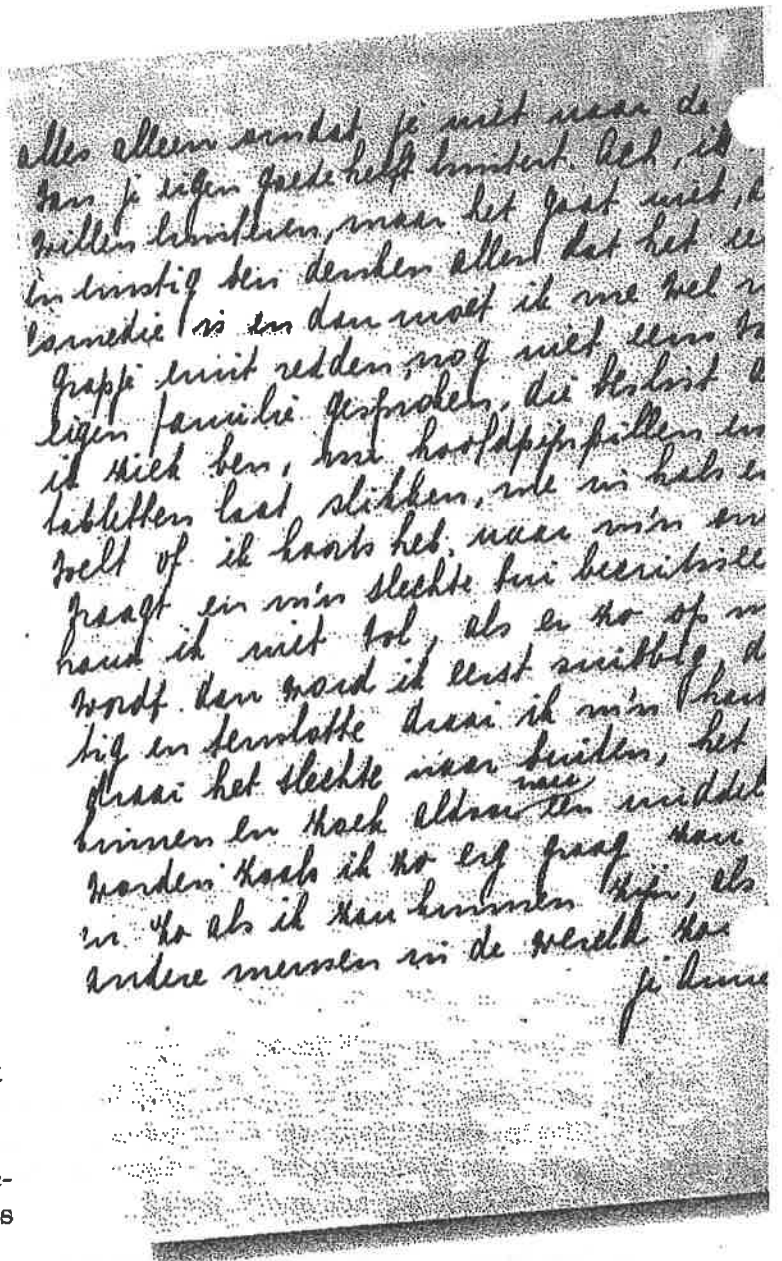 alles alleen omdat je niet naar de
van je eigen goede helft luistert. Ach, ik
willen luisteren, maar het gaat niet,
en ernstig ben denken allen dat het
comedie is en dan moet ik me wel
grapje eruit redden, nog niet eens
eigen familie gesproken, die beslist
ik ziek ben, me hoofdpijnpillen en
tabletten laat slikken, me in hals
voelt of ik koorts heb, naar m'n
vraagt en m'n slechte bui
houd ik niet vol, als er zo op
wordt dan word ik eerst snibbig,
tig en tenslotte draai ik m'n
draai het slechte naar buiten, het
binnen en zoek aldoor naar een middel
worden zoals ik zo erg graag zou
en zo als ik zou kunnen zijn, als
andere mensen in de wereld
je Anne
-
s